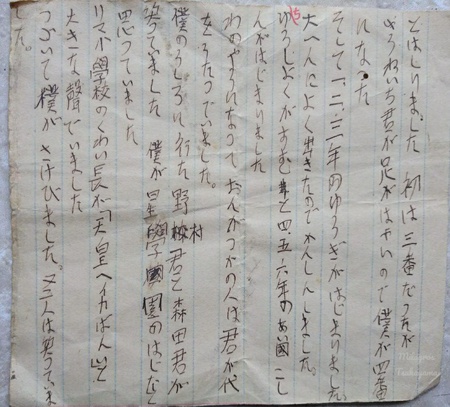 とはしりました 初は三番だったが
君が足がはやいので僕が四番
になった
そして一、二、三年のゆうぎがはじまりました。
大へんによく出きたのでかんしんしました。
ゆうしよくがすむと四、五、六年のあい國こし
んがはじまりました
わのやうになって おんがつかの人は君が代
をうたっていました。
僕のうしろに行た野村君と森田君が
笑っていました 僕が
思っていました
リマ小學校のくわい長が「天皇へイカばんざい」と
大きな聲でいました
つづいて僕がさけびました。人は笑っていま
した。